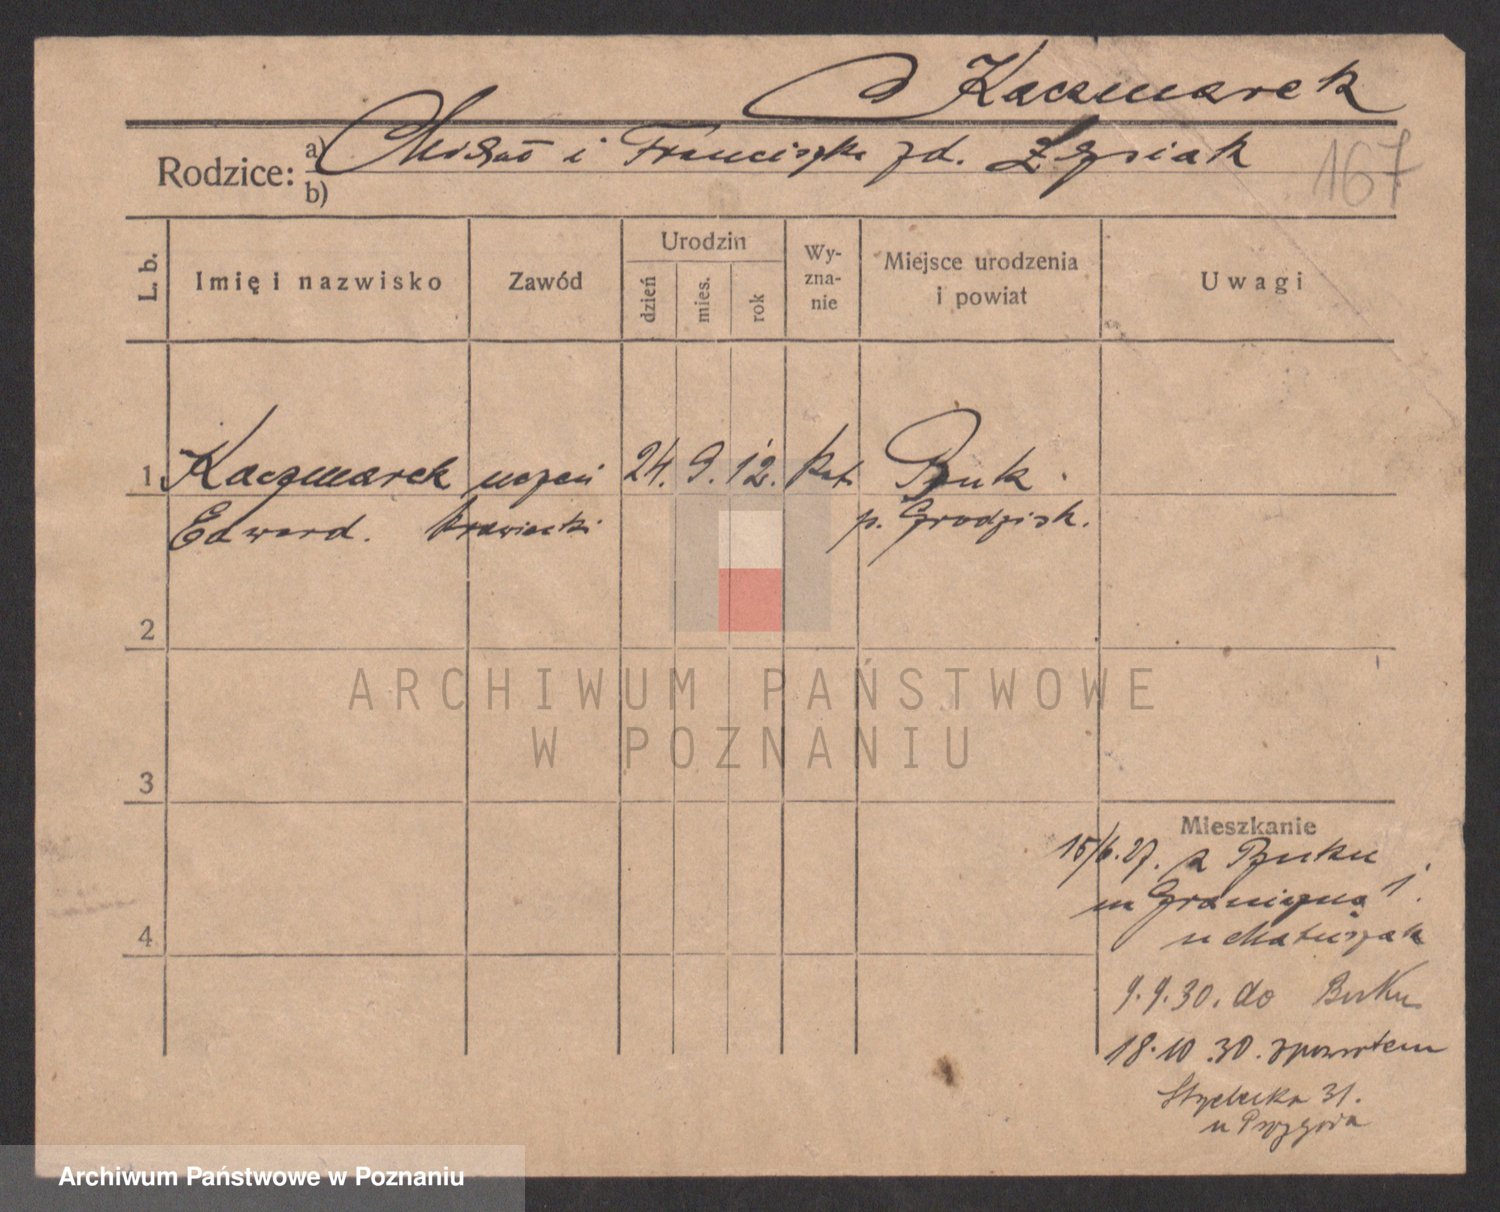 Kaczmarek
Rodzice: a) Michał i Franciszka zd. Łysiak
b)
167
L. b. Imię i nazwisko Zawód Urodzin dzień mies. rok Wy-zna-nie Miejsce urodzenia i powiat Uwagi
1 Kaczmarek uczeń 24. 9. 12. kat. Buk
Edward. krawiecki p. Grodzisk.
2
ARCHIWUM PAŃSTWOWE
W POZNANIU
3
Mieszkanie
15/6.27. z Buku
Graniczna 1.
u Matuszak
4
9.9.30. do Buku
18.10.30. zpowrotem
31.
u
Archiwum Państwowe w Poznaniu